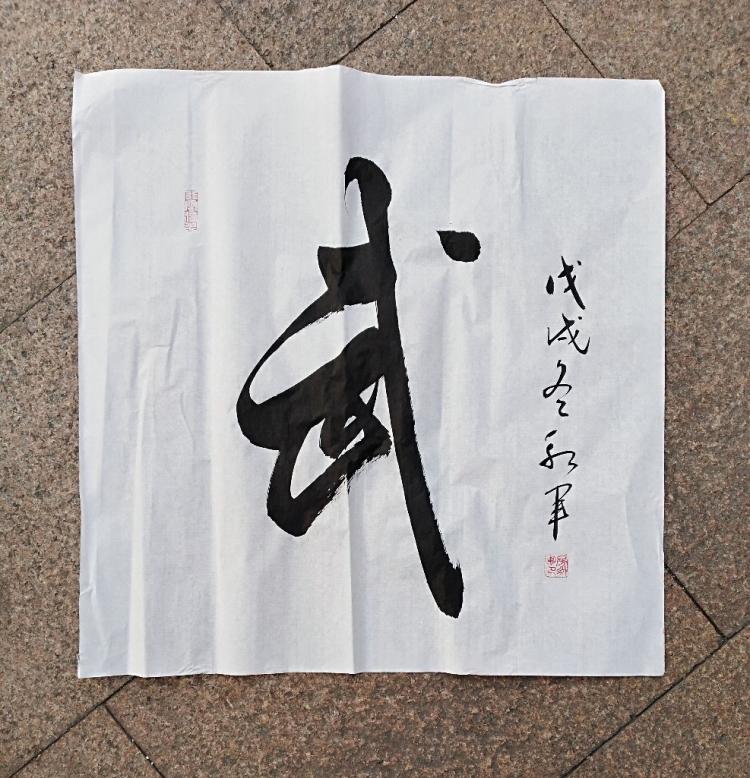 武
戊戌冬永军